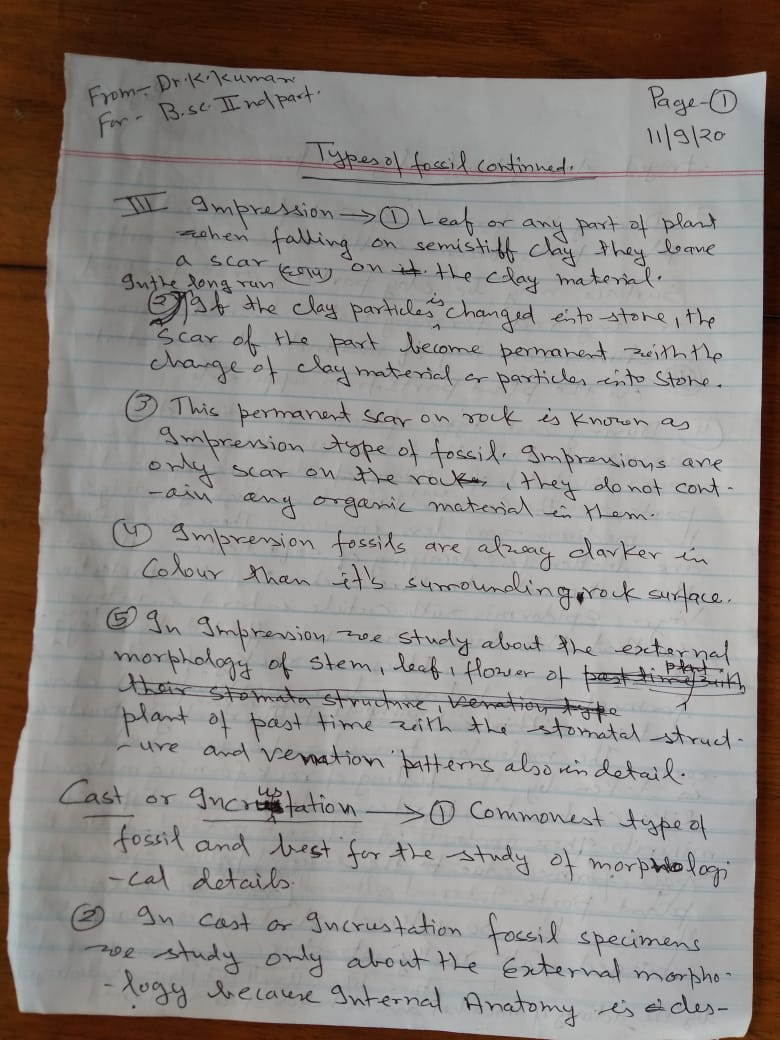 From- Dr. K. Kumar
For - B.sc. II nd part.
Page-①
11/9/20
Types of foscil continned.
III Impression → ① Leaf or any part of plant
when falling on semistiff clay they leave
a scar on the clay material.
In the long run
② If the clay particles is changed into stone, the
Scar of the part become permanent with the
change of clay material or particles into Stone.
③ This permanent scar on rock is known as
Impression type of fossil. Impressions are
only scar on the rock, they do not cont-
-ain any organic material in them.
④ Impression fossils are alway darker in
Colour than it's surrounding rock surface.
⑤ In Impression we study about the external
morphology of stem, leaf, flower of
plant of past time with the stomatal struct-
-ure and venation patterns also in detail.
Cast or Incrustation → ① Commonest type of
fossil and best for the study of morphologi
-cal details.
② In Cast or Incrustation fossil specimens
we study only about the External morpho-
-logy because Internal Anatomy is des-